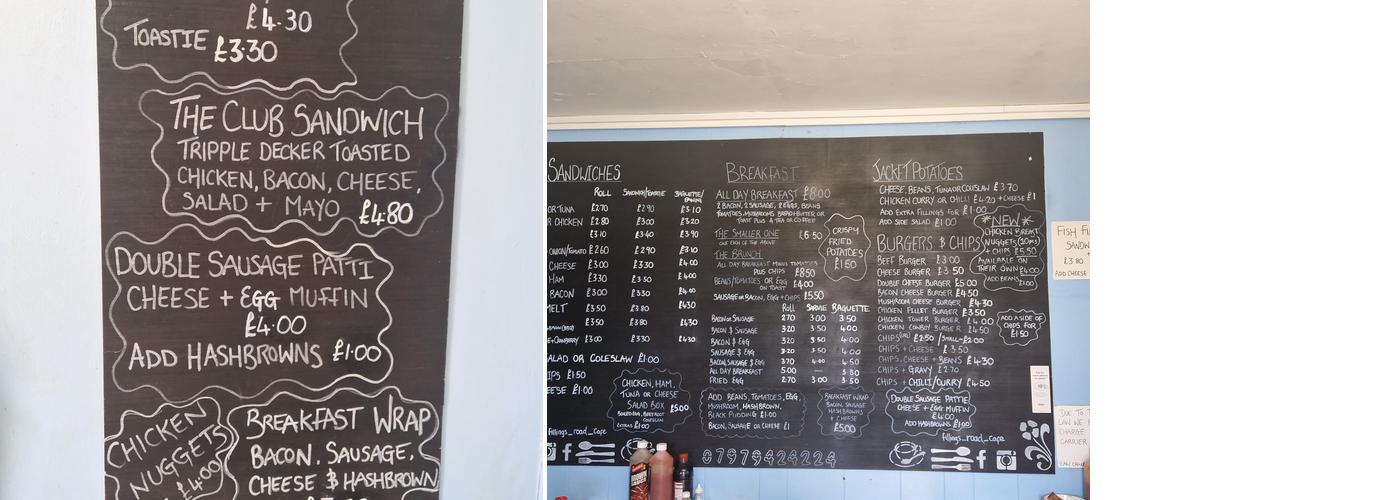 £4.30
TOASTIE £3.30
THE CLUB SANDWICH
TRIPPLE DECKER TOASTED
CHICKEN, BACON, CHEESE,
SALAD + MAYO £4.80
DOUBLE SAUSAGE PATTI
CHEESE + EGG MUFFIN
£4.00
ADD HASHBROWNS £1.00
CHICKEN
NUGGETS
£4.00
BREAKFAST WRAP
BACON, SAUSAGE,
CHEESE & HASHBROWN
SANDWICHES
ROLL
OR TUNA £2.70 £2.90 £3.10
R CHICKEN £2.80 £3.00 £3.20
£3.10 £3.40 £3.90
ONION/TOMATO £2.60 £2.90 £3.10
CHEESE £3.00 £3.30 £4.00
HAM £3.30 £3.50 £4.00
BACON £3.00 £3.30 £4.00
MELT £3.50 £3.80 £4.30
£3.50 £3.80 £4.30
£3.00 £3.30 £4.30
ALAD OR COLESLAW £1.00
IPS £1.50
EESE £1.00
CHICKEN, HAM,
TUNA OR CHEESE
SALAD BOX £5.00
fillings_road_cafe
BREAKFAST
ALL DAY BREAKFAST £8.00
2 BACON, 2 SAUSAGE, 2 EGGS, BEANS
TOAST PLUS A TEA OR COFFEE
THE SMALLER ONE £6.50
ONE EACH OF THE ABOVE
THE BRUNCH
ALL DAY BREAKFAST MINUS TOMATOES
PLUS CHIPS £8.50
BEANS/TOMATOES OR EGG £4.00
ON TOAST
SAUSAGE OR BACON, EGG + CHIPS £5.50
CRISPY
FRIED
POTATOES
£1.50
ROLL SARNIE BAGUETTE
BACON OR SAUSAGE 2.70 3.00 3.50
BACON & SAUSAGE 3.20 3.50 4.00
BACON & EGG 3.20 3.50 4.00
SAUSAGE & EGG 3.20 3.50 4.00
BACON, SAUSAGE & EGG 3.70 4.00 4.50
ALL DAY BREAKFAST 5.00 — 7.00
FRIED EGG 2.70 3.00 3.50
ADD BEANS, TOMATOES, EGG,
MUSHROOM, HASHBROWN,
BLACK PUDDING £1.00
BACON, SAUSAGE OR CHEESE £1
BREAKFAST WRAP
BACON, SAUSAGE
HASHBROWNS
+ CHEESE
£5.00
07979424224
JACKET POTATOES
CHEESE, BEANS, TUNA OR COLESLAW £3.70
CHICKEN CURRY OR CHILLI £4.20 + CHEESE £1
ADD EXTRA FILLINGS FOR £1.00
ADD SIDE SALAD £1.00
*NEW*
CHICKEN BREAST
NUGGETS (10pcs)
+ CHIPS £5.50
AVAILABLE ON
THEIR OWN £4.00
ADD BEANS £1.00
BURGERS & CHIPS
BEEF BURGER £3.00
CHEESE BURGER £3.50
DOUBLE CHEESE BURGER £5.00
BACON CHEESE BURGER £4.50
MUSHROOM CHEESE BURGER £4.30
CHICKEN FILLET BURGER £3.50
CHICKEN TOWER BURGER £4.00
CHICKEN COWBOY BURGER £4.50
CHIPS £2.50 / SMALL £2.00
CHIPS + CHEESE £3.50
CHIPS, CHEESE + BEANS £4.30
CHIPS + GRAVY £2.70
CHIPS + CHILLI/CURRY £4.50
ADD A SIDE OF
CHIPS FOR
£1.50
DOUBLE SAUSAGE PATTIE
CHEESE + EGG MUFFIN
£4.00
ADD HASHBROWNS £1.00
fillings_road_cafe
FISH FI
SANDW
£3.80
ADD CHEESE
DUE TO T
LAW WE H
CHARGE
CARRIER